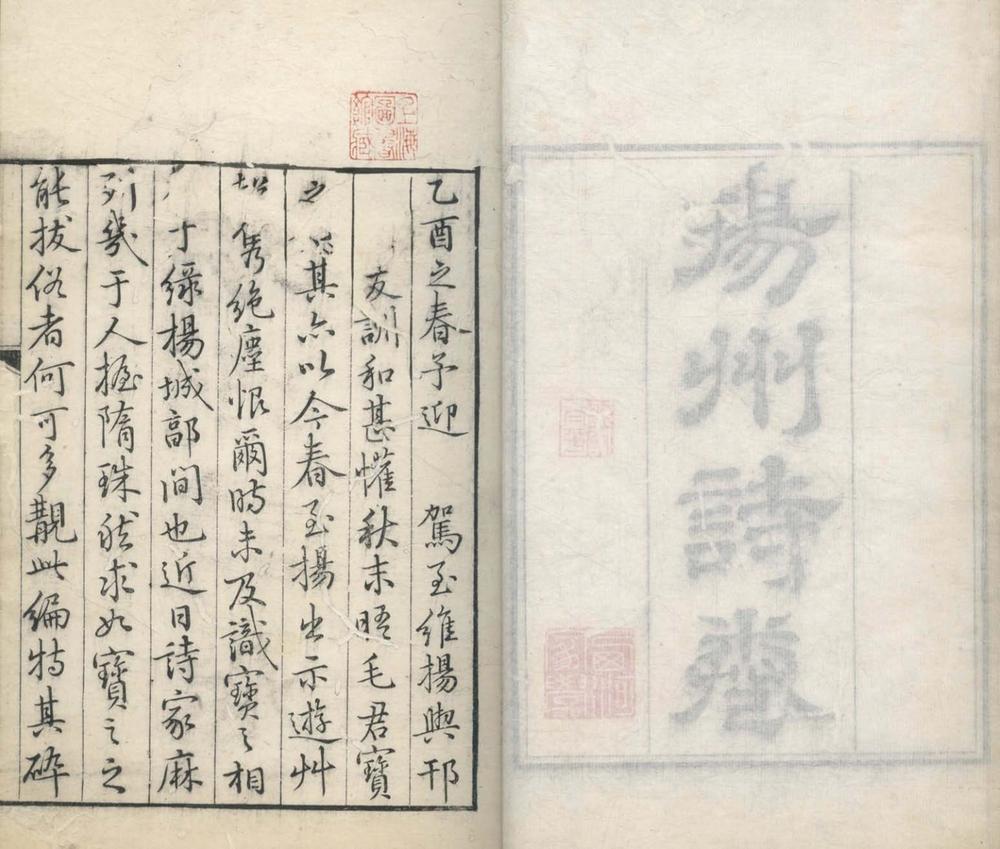 揚州詩𠔏
乙酉之春予迎 駕至維揚與邗
友訓和甚懽秋末晤毛君寶
之 其亦以今春至揚出示遊艸
雋絶塵恨爾時未及識寶之相
于綠楊城郭間也近日詩家麻
列幾于人握隋珠然求如寶之之
能拔俗者何可多覯此編特其碎
上海圖書館藏